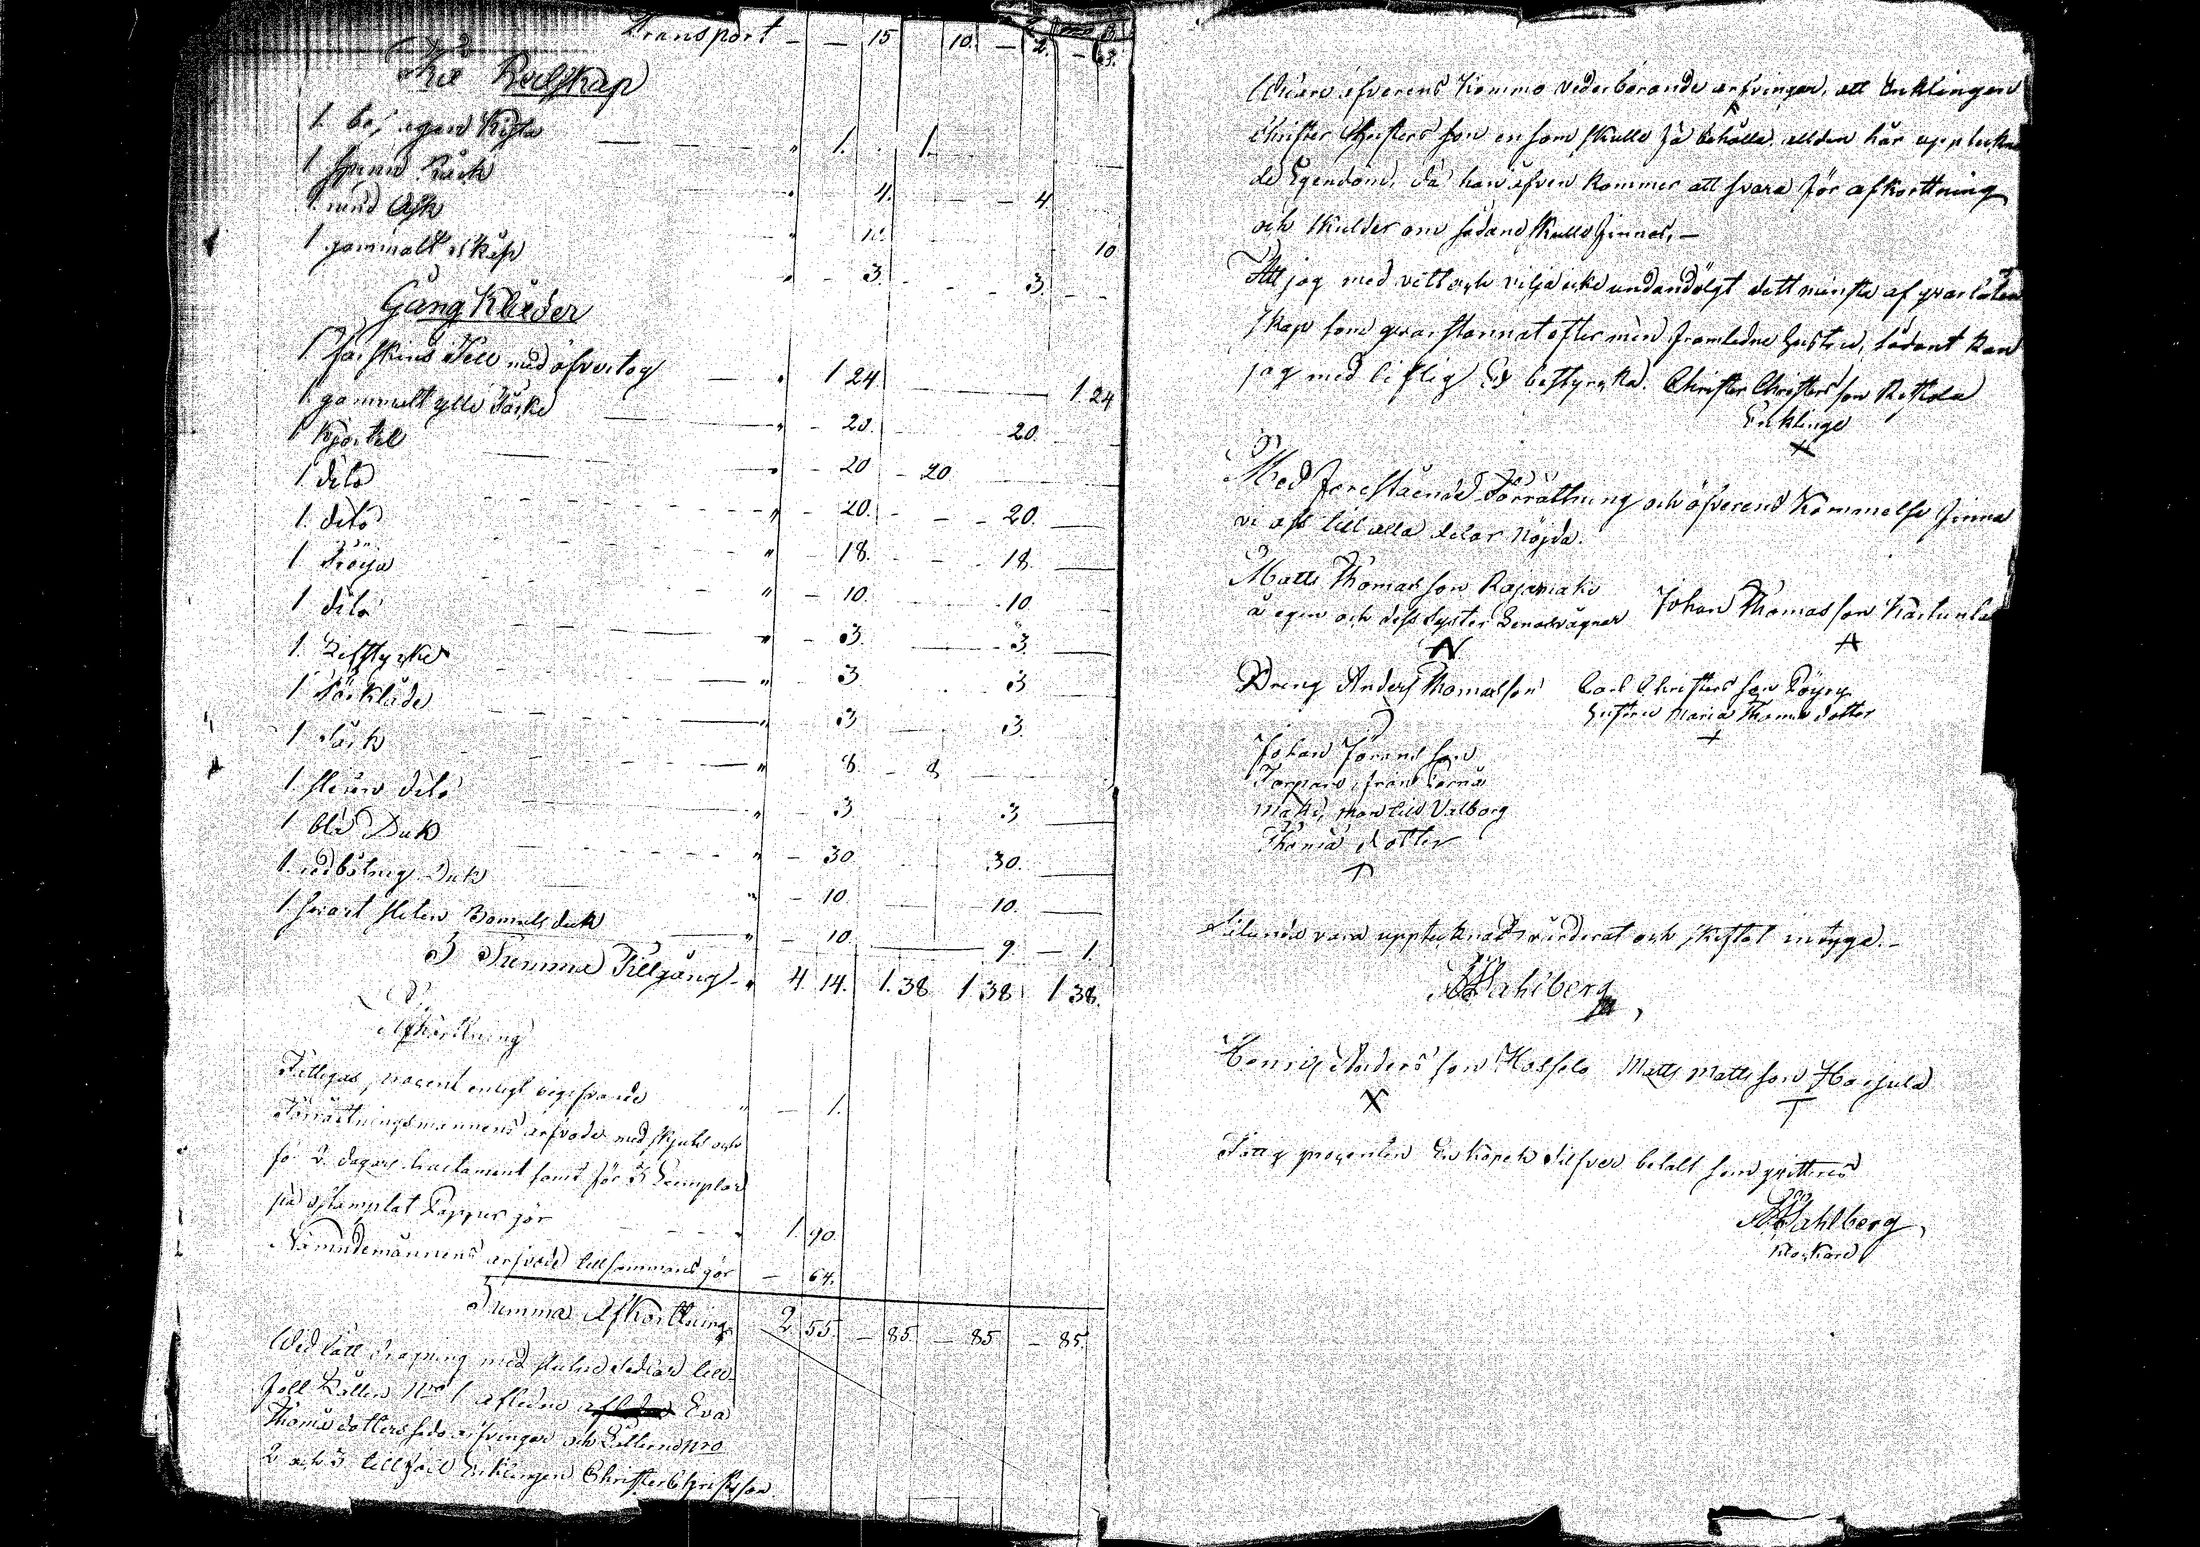 Transport — — 15 10. — 2. — 3.
Trä Redskap
1. egen Kista " 1. 1.
1 Spinn Råck " 4. — — 4
1. rund Ask " 10 10
1 gammalt skåp " — 3. — — 3. —
Gång Kläder
1 fårskins Fell med öfvertog — " 1 24 1.24
1. gammalt ylle — " — 20. 20. —
1 Kjortel — " — 20 — 20
1. dito " — 20. — — 20. —
1. dito " — 18. — — 18. —
1 Tröija " — 10. 10 —
1 dito " — 3. — 3. —
1. Lifstycke — " — 3 3 —
1 Förkläde — " — 3 3. —
1 Särk — " 8. — 8
1. sliten dito " — 3 3 —
1 blå Duk " — 30 30. —
1. rödbotnig Duk — " — 10 10. —
1. svart sliten Bomulls duk — " — 10. — 9. — 1
Summa Tillgång — " 4 14. 1.38 1 38 1 38.
Afkortning
Fattigas procent enligt " — 1.
Förrättningsmannens arfvode med skjuts och
för 2. dagars tractament samt för 3 Exemplar
på stämplat Papper gör " 1. 90.
Nämndemännens arfvode tillsammans gör — 64.
Summa Afkortning 2 55. — 85. — 85 — 85.
Wid lått dragning med slutne Sedlar till-
föll Lätten No 1 aflidne Eva
Thomæ dotters arfvingar och Lotterne No
2 och 3 tillföll Enklingen Christer Christersson.
öfverens kommo vederbörande arfvingar, att Enklingen
Christer Christers son en som skulle få behålla all den här uppteckna
de Egendom, då han äfven kommer att svara för afkortning
och skulder om sådana skulle finnas, —
Att jag med vett och vilja icke undandölgt dett minsta af qvarlåten
skap som qvarstannat efter min framledne hustru, sådant kan
jag med liflig Ed bestyrcka. Christer Christers son
Enklinge
X
Med förestående Förrättning och öfverens Kommelse finna
vi oss till alla delar nöjda.
Matts Thomas son Rajamäki Johan Thomas son
å egen och dess syster vägnar
Dreng Anders Thomasson Carl Christers son Pöyry
hustru Maria Thomæ dotter
Johan Jörans son
Torpare från
mäki, man till Valborg
Thomæ dotter
Sålunda vara upptecknadt värderat och skiftat intyga. —
Wahlberg
Henrik Anders son Matts Matts son Harjula
X T
Fattig procenten En kopek Silfver betalt som qvitteras
Wahlberg,
Klockare